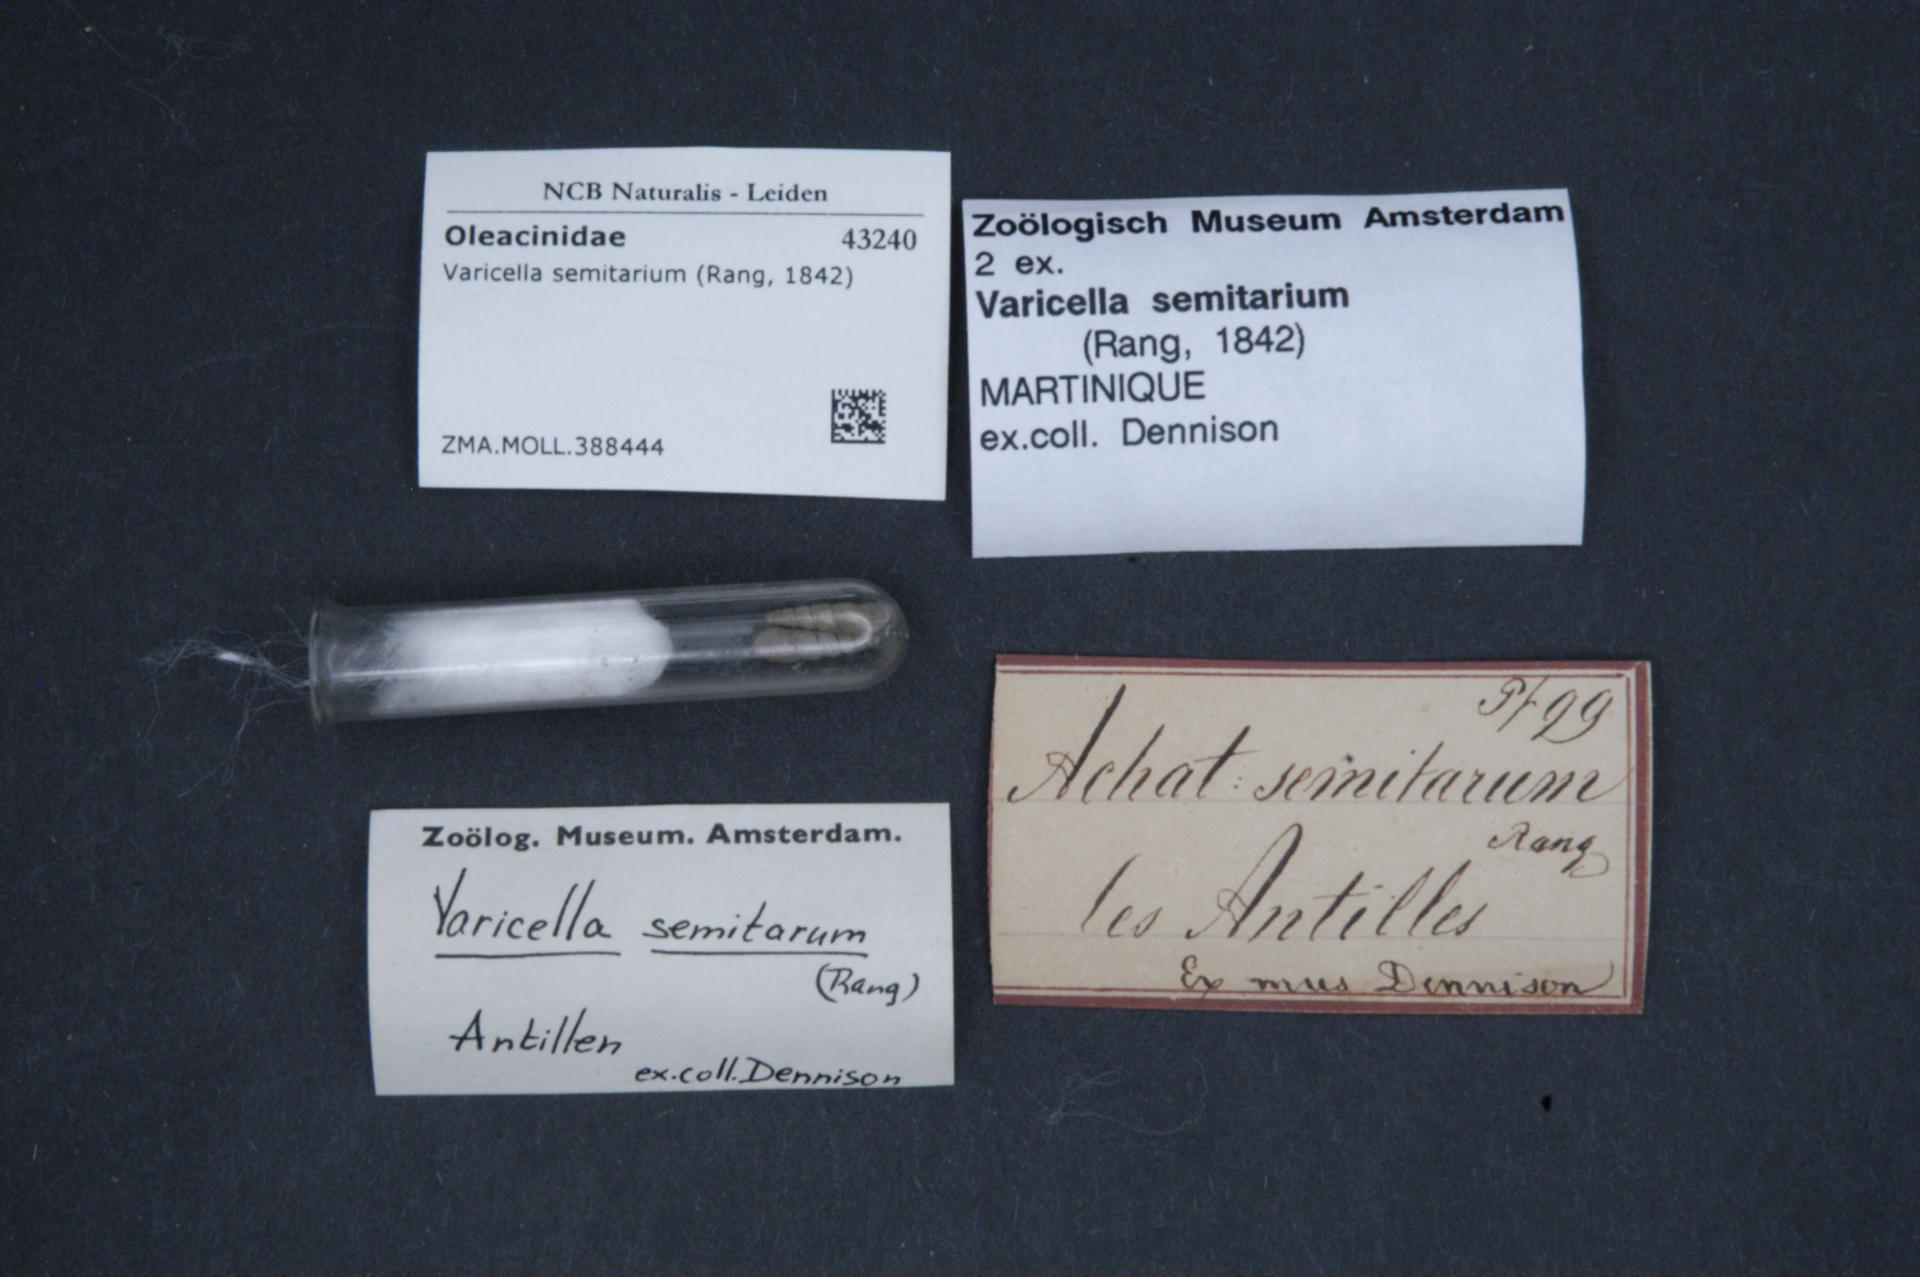 NCB Naturalis - Leiden
Oleacinidae 43240
Varicella semitarium (Rang, 1842)
ZMA.MOLL.388444
Zoölogisch Museum Amsterdam
2 ex.
Varicella semitarium
(Rang, 1842)
MARTINIQUE
ex.coll. Dennison
Zoölog. Museum. Amsterdam.
Varicella semitarum
(Rang)
Antillen
ex.coll. Dennison
Achat: semitarum
Rang
les Antilles
Ex mus Dennison